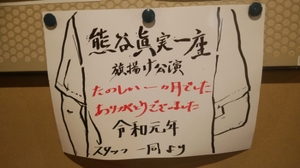 熊谷眞実一座
旗揚げ公演
たのしい一ヵ月でした
ありがとうございました
令和元年
スタッフ一同より